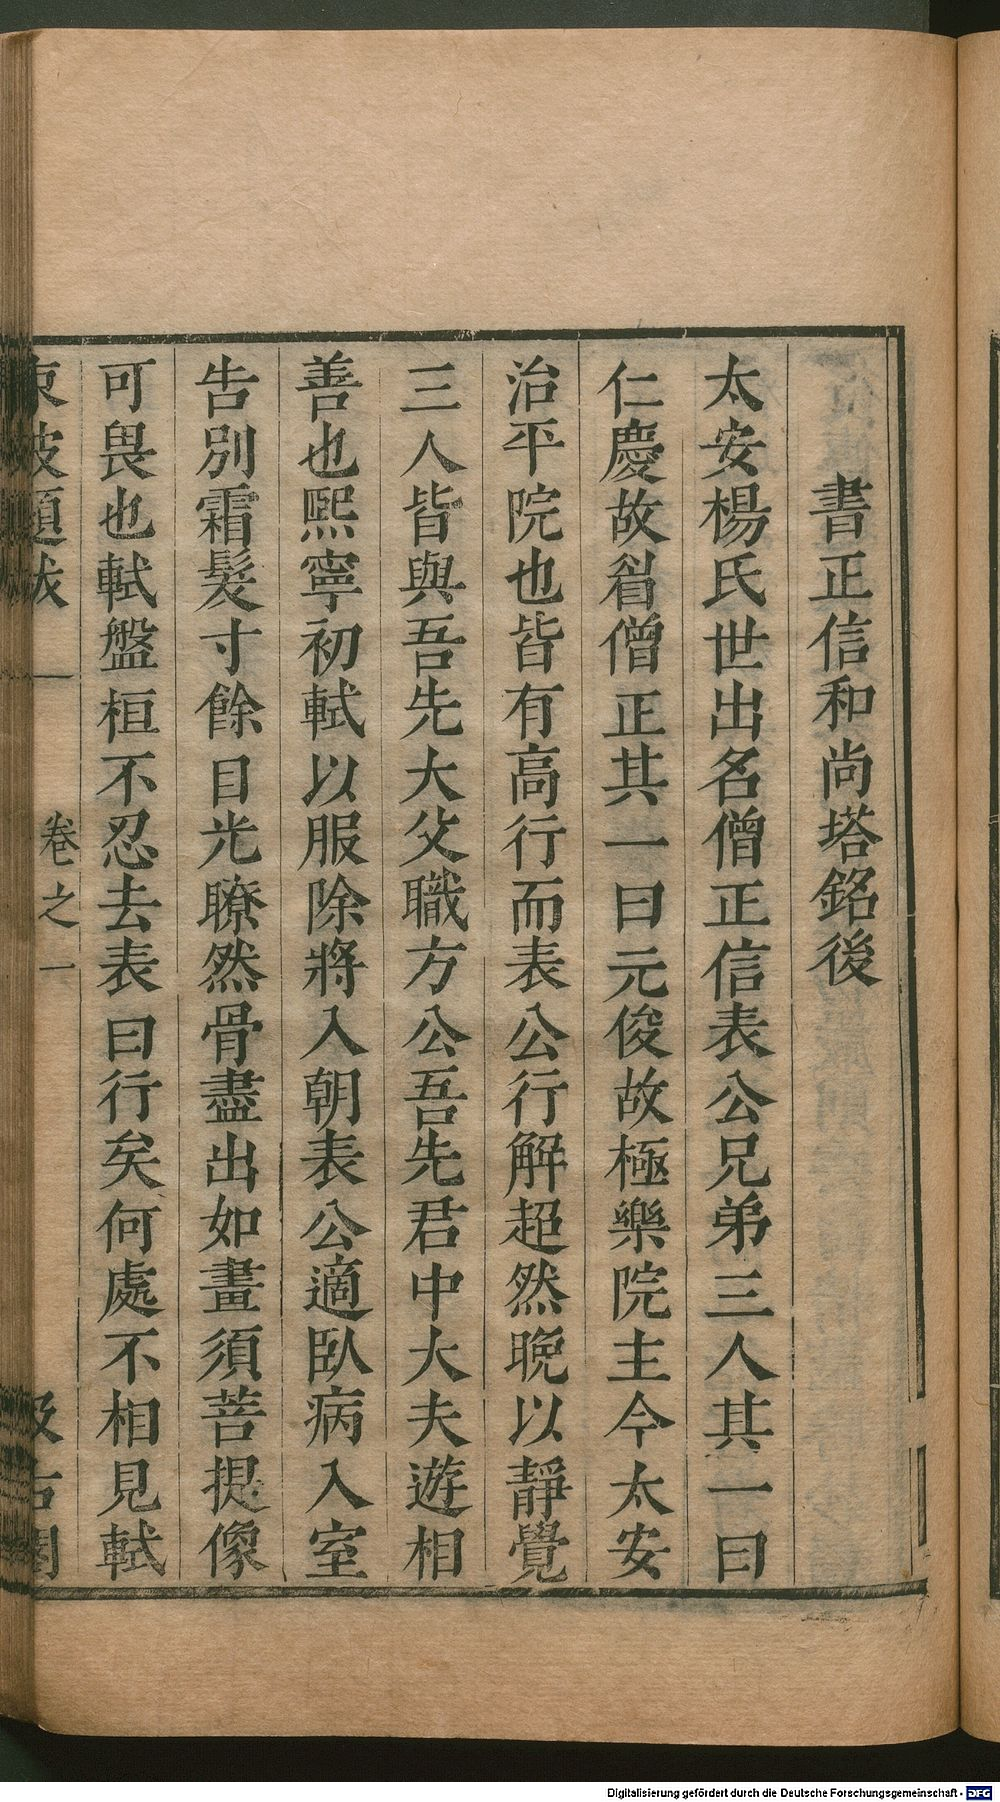 書正信和尚塔銘後
太安楊氏世出名僧正信表公兄弟三人其一曰
仁慶故眉僧正其一曰元俊故極樂院主今太安
治平院也皆有高行而表公行解超然晚以靜覺
三人皆與吾先大父職方公吾先君中大夫遊相
善也熙寧初軾以服除將入朝表公適臥病入室
告別霜髮寸餘目光瞭然骨盡出如畫須菩提像
可畏也軾盤桓不忍去表曰行矣何處不相見軾
東坡題跋 卷之一 汲古閣
Digitalisierung gefördert durch die Deutsche Forschungsgemeinschaft - DFG